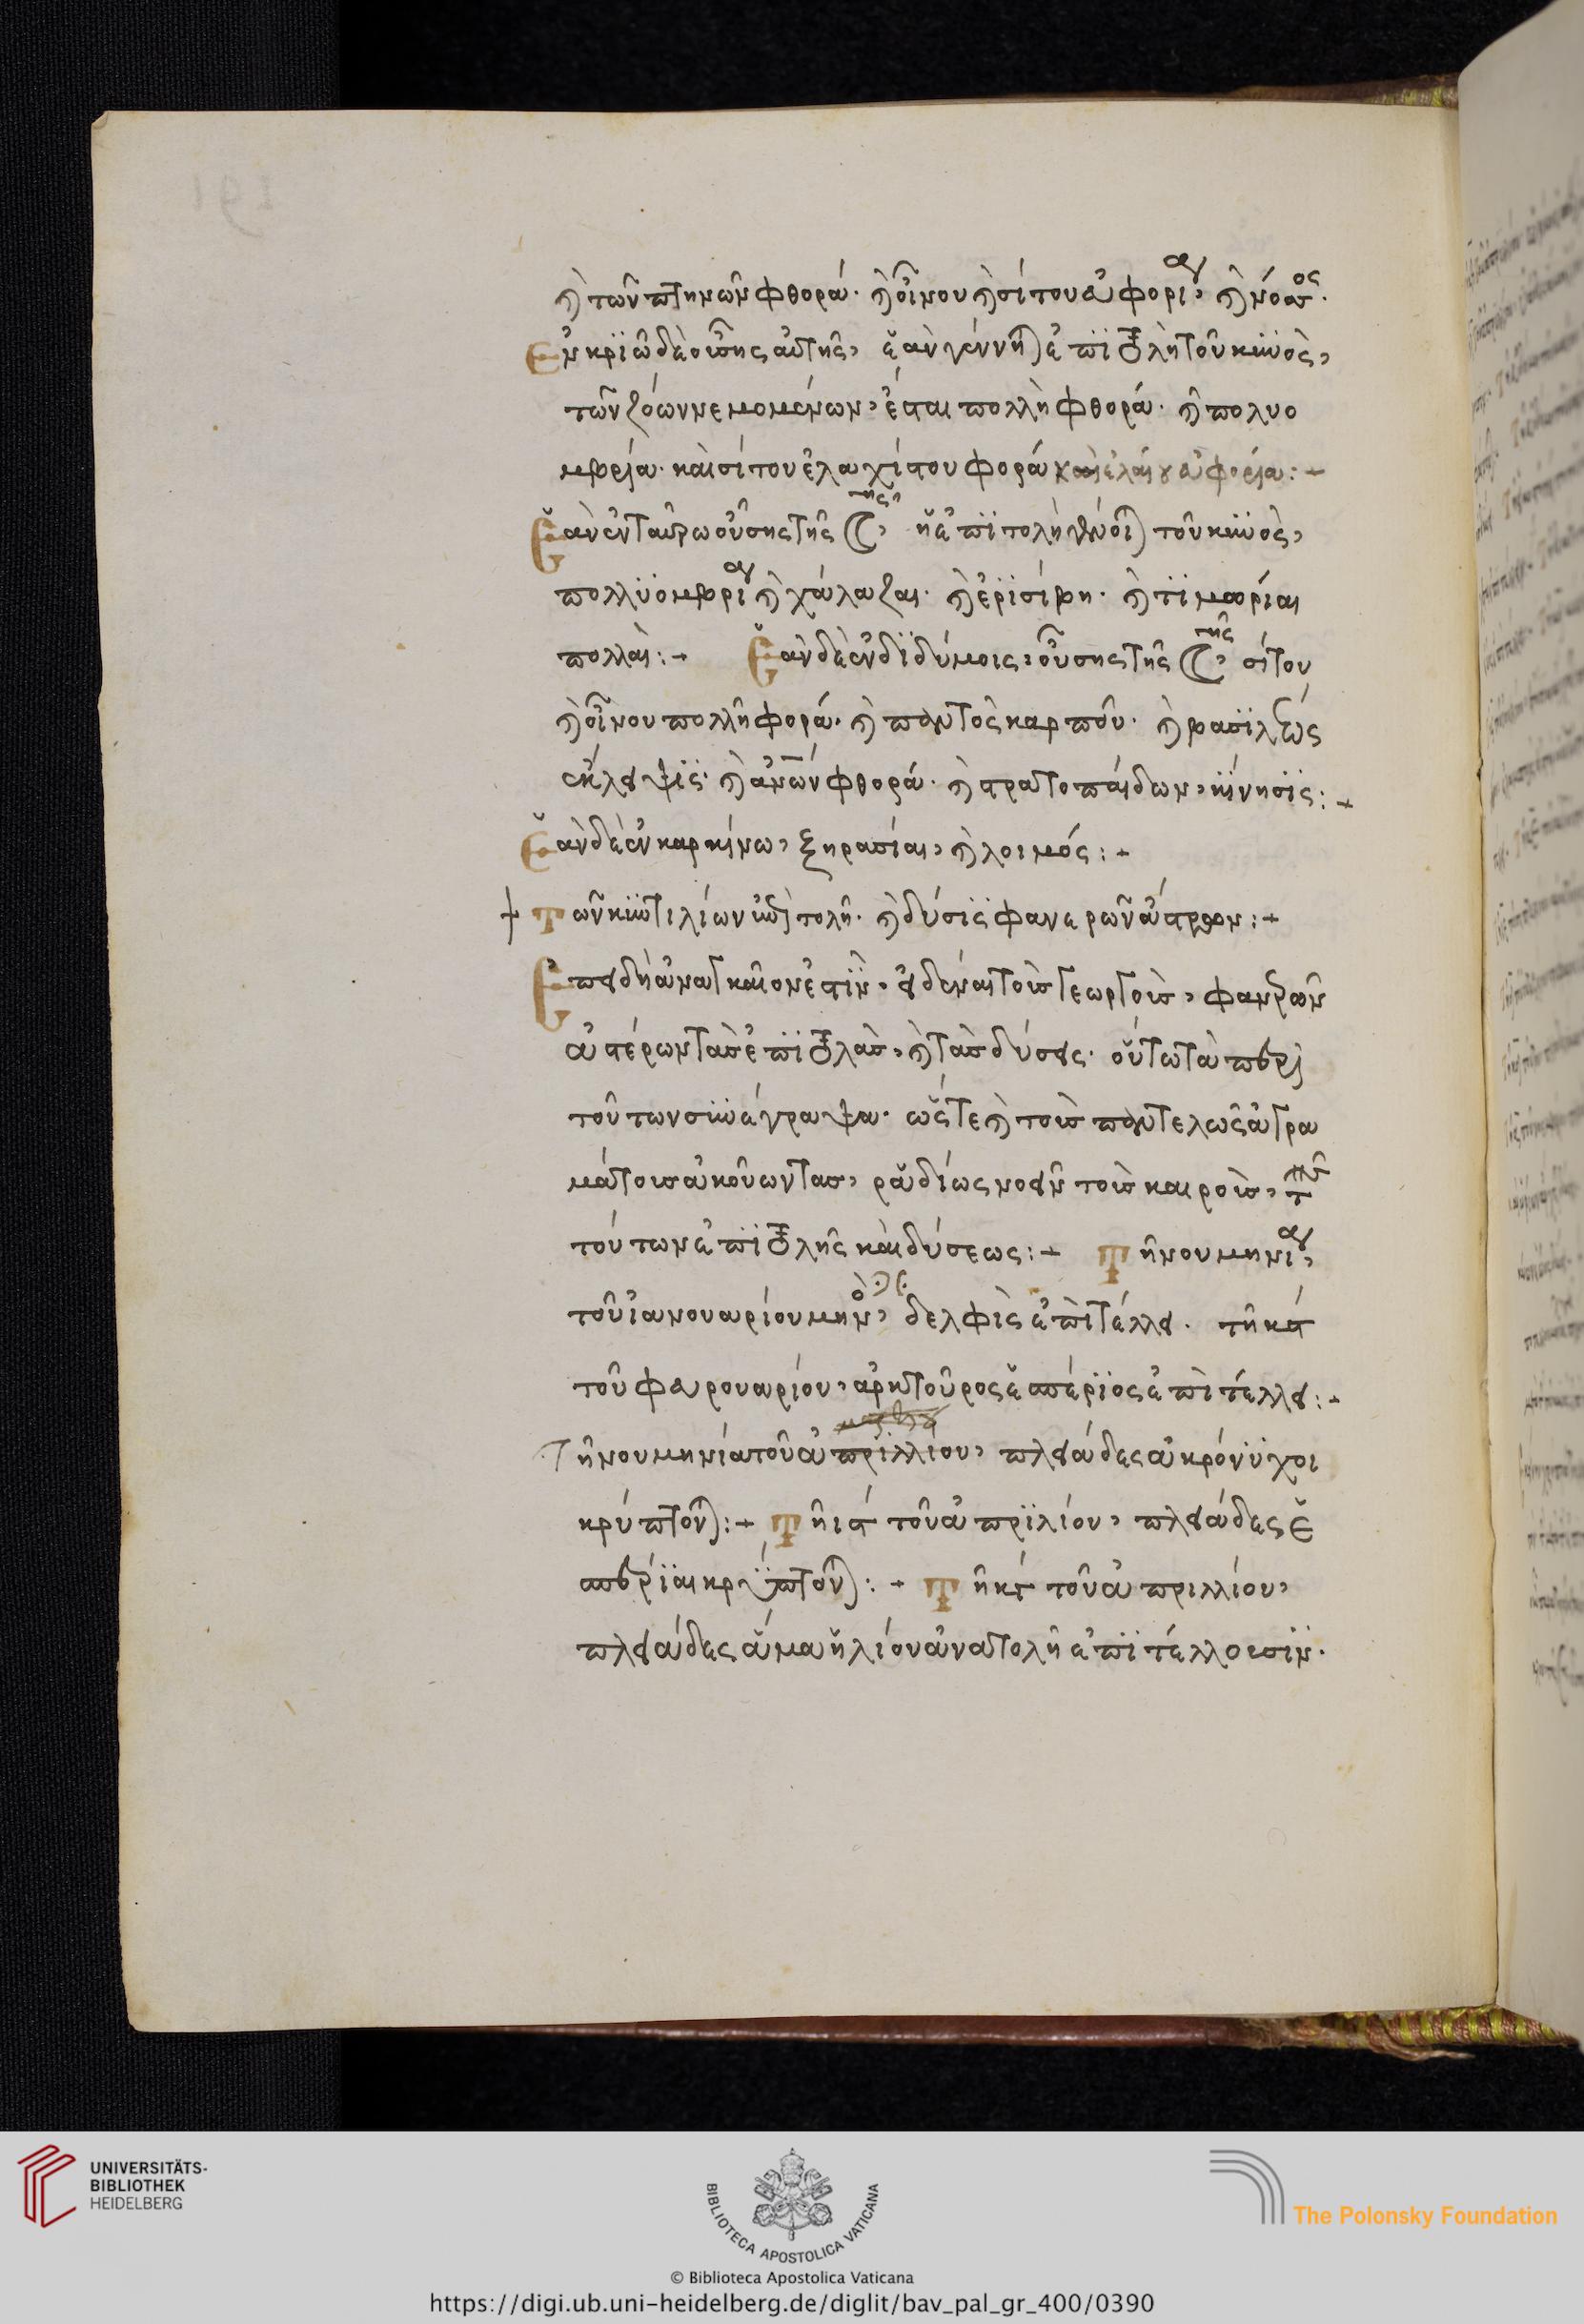 καὶ τῶν πτηνῶν φθορά· καὶ οἴνου καὶ σίτου εὐφορία, καὶ νόσος·
Ἐν κριῶ δὲ οὔσης αὐτῆς, ἐὰν γέννηται ἐπιτολὴ τοῦ κυνὸς,
τῶν ζώων νεμομένων, ἔσται πολλὴ φθορά· καὶ πολυο
μβρία· καὶ σίτου ἐλαχίστου φορά καὶ ἐλαίου εὐφορία:–
Ἐὰν ἐν ταύρω οὔσης τῆς ☾ης, ἡ ἐπιτολὴ γένοιται τοῦ κυνὸς,
πολλυομβρία καὶ χάλαζαι· καὶ ἐρισίβη· καὶ τιμωρίαι
πολλαί:– Ἐὰν δὲ ἐν διδύμοις, οὔσης τῆς ☾ης, σίτου
καὶ οἴνου πολλὴ φορά· καὶ παντὸς καρποῦ· καὶ βασιλέως
ἔκλειψις· καὶ ἀνῶν φθορά· καὶ στρατοπαίδων, κίνησις:–
Ἐὰν δὲ ἐν καρκίνω, ξηρασίαι, καὶ λοιμός:–
Τῶν κυντιλίων ἐπιτολὴ· καὶ δύσις φανερῶν ἄστρων:–
Ἐπειδὴ ἀναγκαῖον ἐστὶν· εἰδέναι τοῖς γεωργοῖς, φανερῶν
ἀστέρων τὰς ἐπιτολὰς, καὶ τὰς δύσεις· οὕτω τὰ περὶ
τούτων συνέγραψα· ὥστε καὶ τοῖς παντελῶς ἀγρα
μάτοις ἀκούωντας, ῥαδίως νοεῖν τοῖς καιροῖς, τῆς
τούτων ἐπιτολῆς καὶ δύσεως:– Τῆ νουμηνία,
τοῦ ἰανουαρίου μηνὸς, δελφὶς ἐπιτέλλει· τῆ κϛ
τοῦ φευρουαρίου, ἀρκτοῦρος ἑσπέριος ἐπιτέλλει:–
Τῆ νουμηνία τοῦ ἀπριλλίου, πλειάδες ἀκρόνυχοι
κρύπτονται:– Τῆ ιϛ τοῦ ἀπριλίου, πλειάδες ἑ
σπέριαι κρύπτονται:– Τῆ κγ τοῦ ἀπριλλίου,
πλειάδες ἅμα ἡλίου ἀνατολῆ ἐπιτέλλουσιν·
UNIVERSITÄTS-
BIBLIOTHEK
HEIDELBERG
BIBLIOTECA APOSTOLICA VATICANA
The Polonsky Foundation
© Biblioteca Apostolica Vaticana
https://digi.ub.uni-heidelberg.de/diglit/bav_pal_gr_400/0390